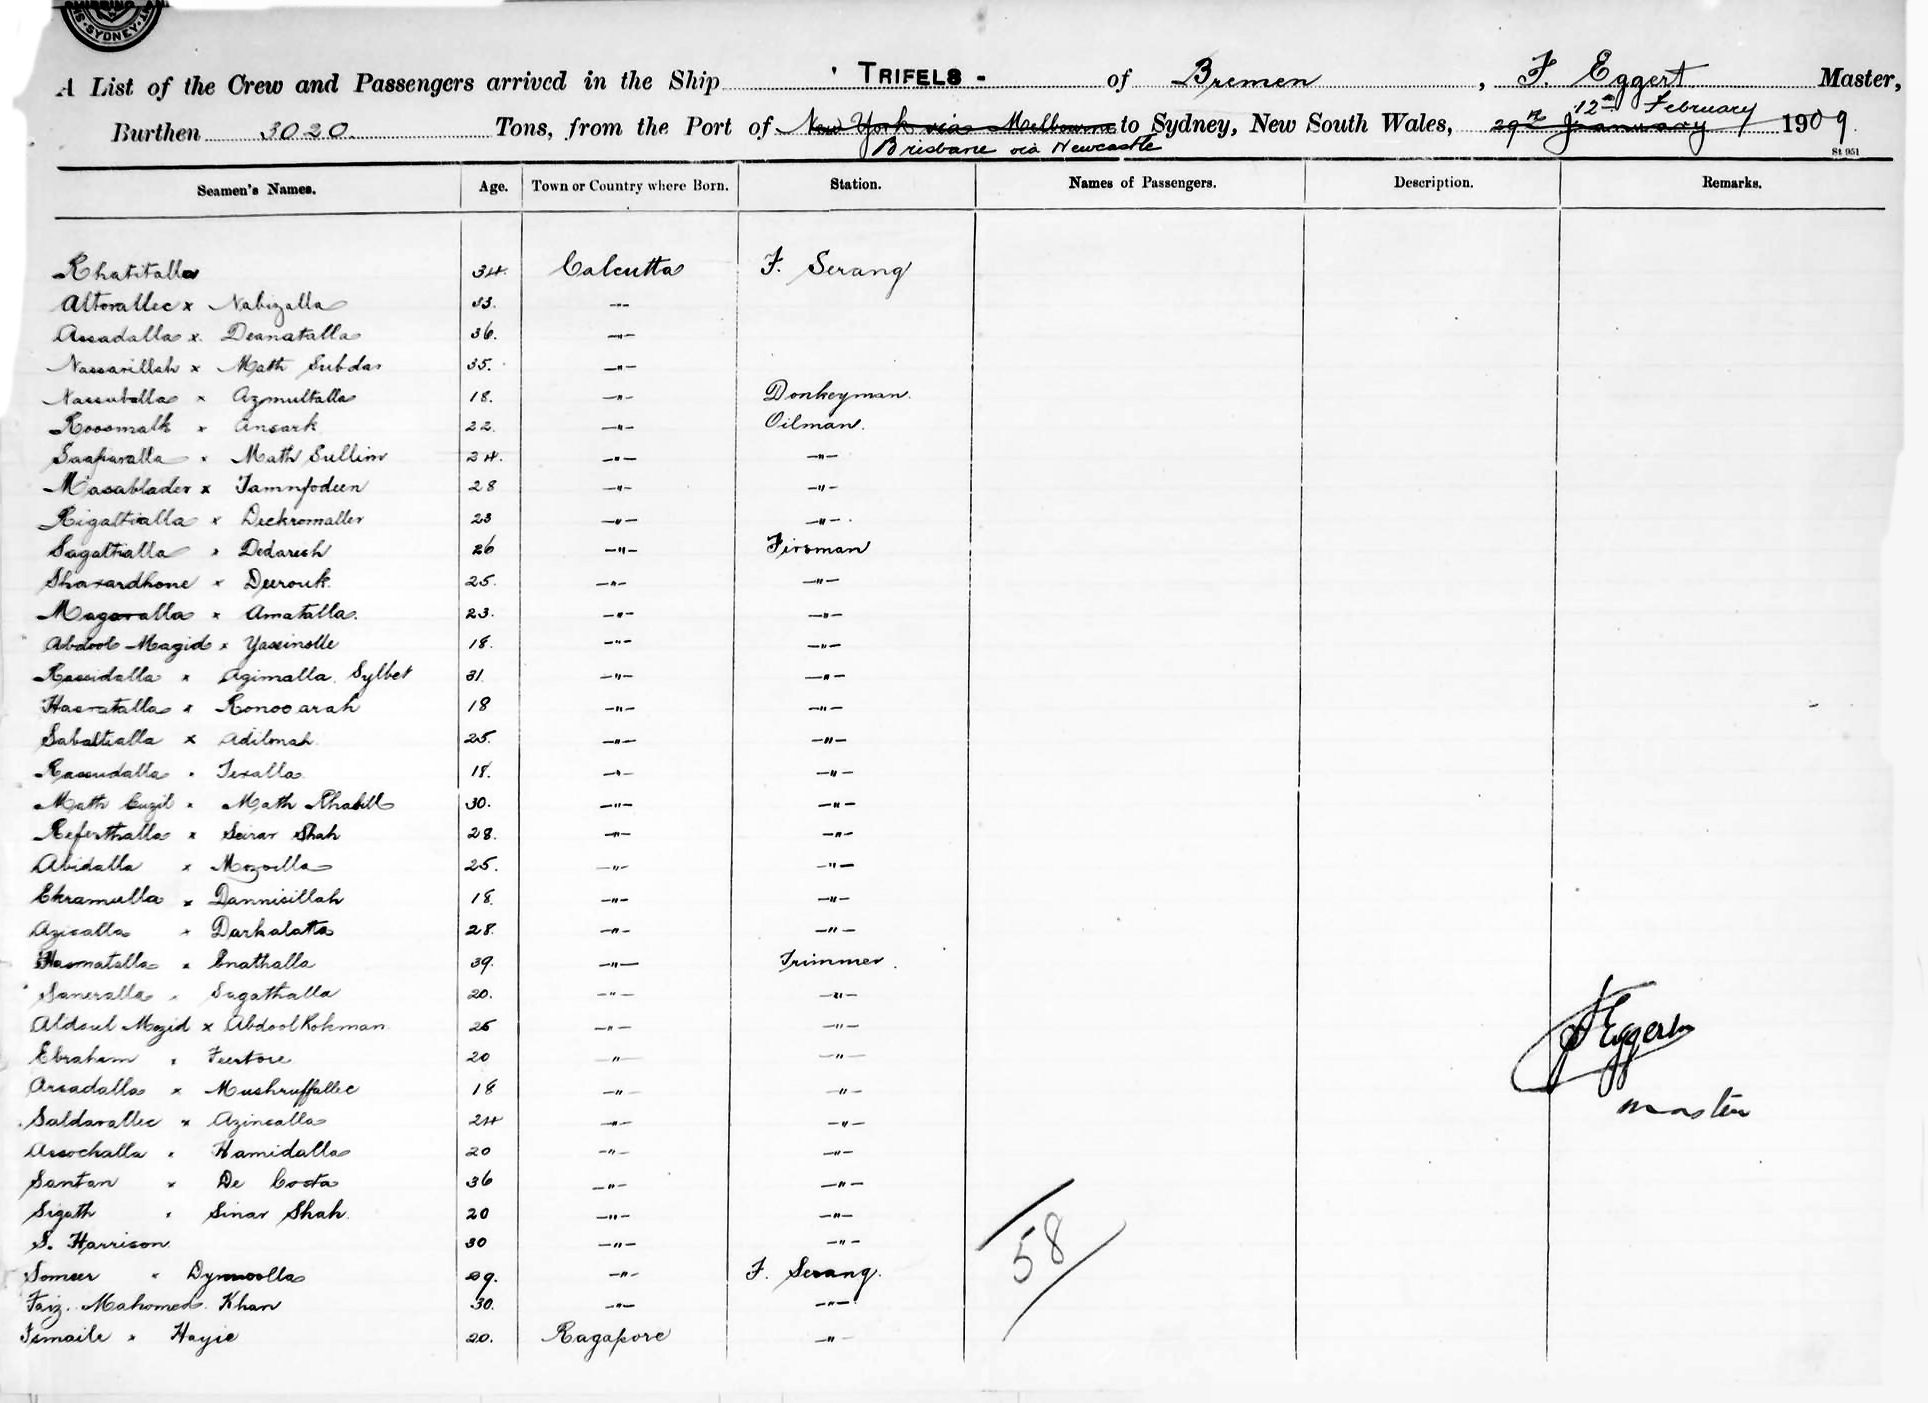 SYDNEY
A List of the Crew and Passengers arrived in the Ship ' TRIFELS - of Bremen, F. Eggert Master,
Burthen 3020 Tons, from the Port of New York via Melbourne to Sydney, New South Wales, 29th January 12th February 1909
Brisbane via Newcastle
St 951
Seamen's Names. Age. Town or Country where Born. Station. Names of Passengers. Description. Remarks.
Khatitalla 34. Calcutta F. Serang
Altorallee x Nabizalla 33. —"—
Assadalla x Deanatalla 36. —"—
Nassarillah x Math Subdar 35. —"—
Nassuballa x Azmultalla 18. —"— Donkeyman.
Roosmalk x Ansark 22. —"— Oilman.
Saaparalla x Math Sullim 24. —"— —"—
Masablader x Jamnfodeen 28 —"— —"—
Rigaltialla x Deckromaller 23 —"— —"—
Sagaltialla x Dedaresh 26 —"— Firsman
Shavardhone x Deerouk 25. —"— —"—
Magoralla x Amatalla. 23. —"— —"—
Abdool Magid x Yassinolle 18. —"— —"—
Rassidalla x Agimalla. Sylbet 31. —"— —"—
Hasratalla x Ronooarah 18 —"— —"—
Sabaltialla x Adilonah 25. —"— —"—
Rassudalla x Jeralla 18. —"— —"—
Math Cuzil x Math Khabill 30. —"— —"—
Referthalla x Seirar Shah 28. —"— —"—
Abidalla x Mozoilla 25. —"— —"—
Ekramulla x Dannisillah 18. —"— —"—
Azisalla x Darkalatta 28. —"— —"—
Hasmatalla x Enathalla 39. —"— Trimmer.
Saneralla x Sagathalla 20. —"— —"—
Aldoul Mozid x Abdool Rohman 25 —"— —"—
Ebraham x Feertore 20 —"— —"—
Arsadalla x Mushruffallee 18 —"— —"—
Saldarallee x Azinealla 24 —"— —"—
Assochalla x Hamidalla 20 —"— —"—
Santan x De Costa 36 —"— —"—
Sigath x Sinar Shah. 20 —"— —"—
S. Harrison 30 —"— —"—
Someer x Dymoolla 29. —"— F. Serang.
Faiz. Mahomed Khan 30. —"— —"—
Ismaile x Hayie 20. Ragapore —"—
F Eggert
master
58